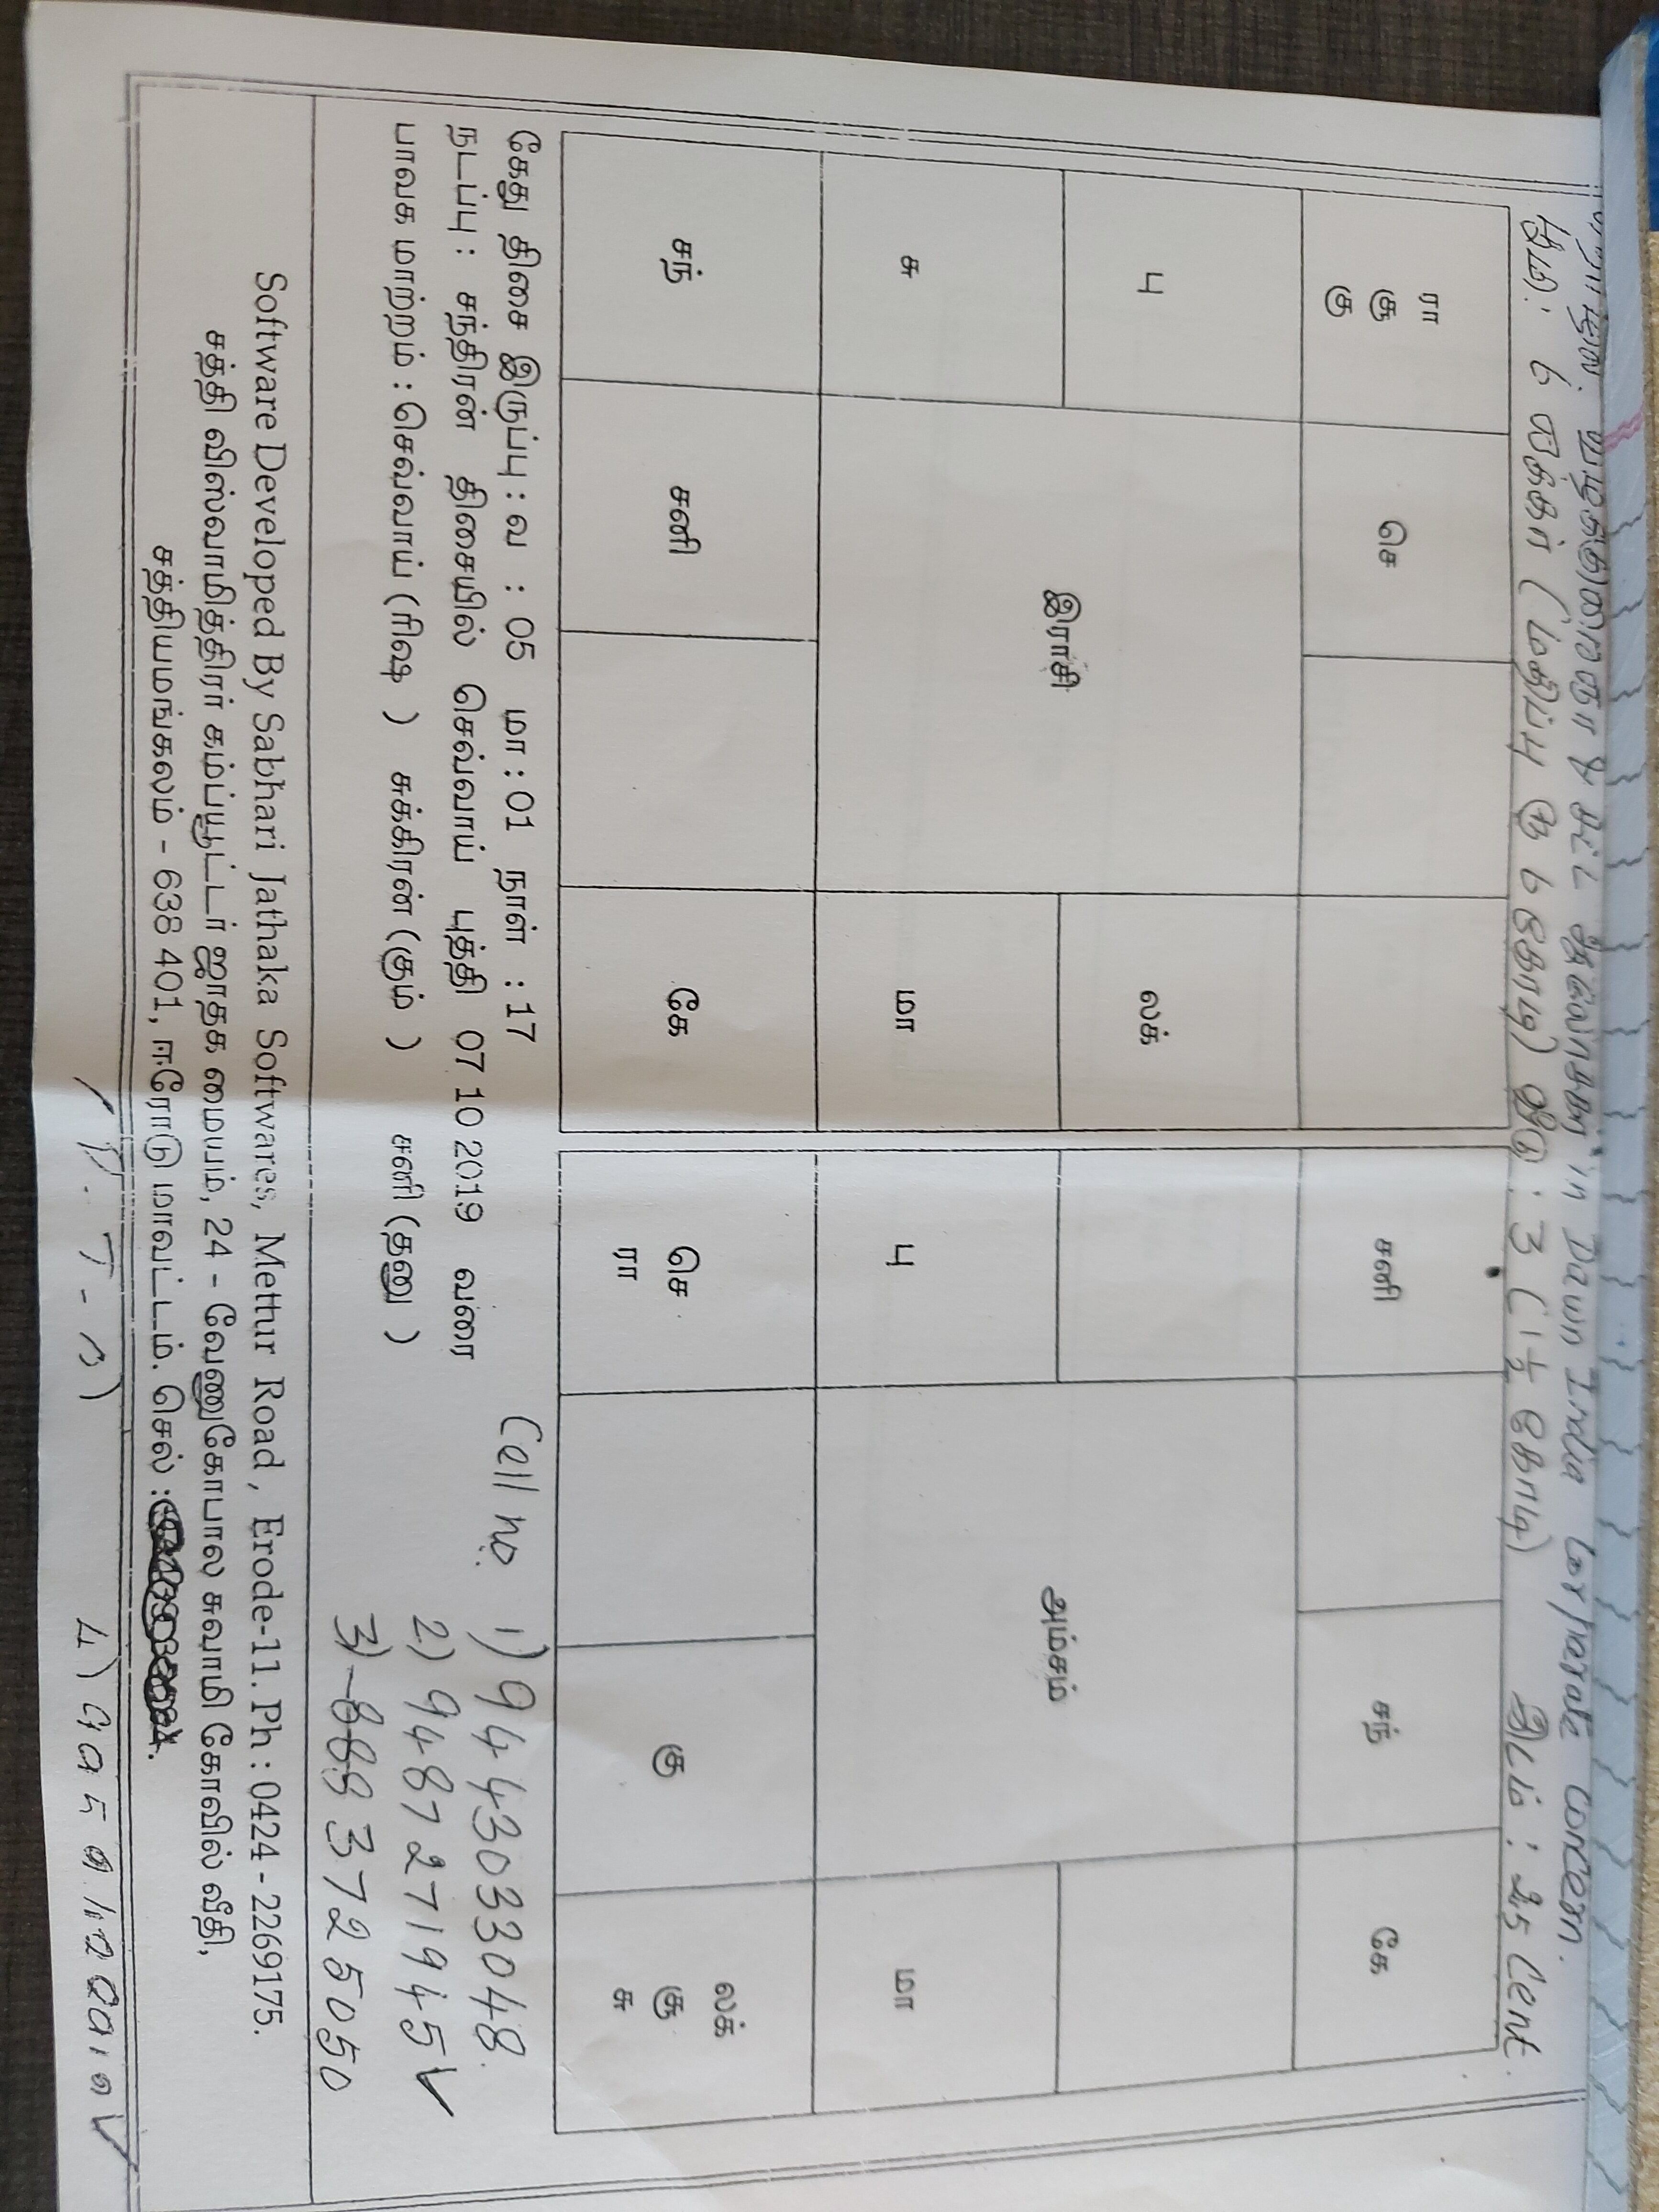 in Dawn India Corporate concern.
பூமி : 6 ஏக்கர் (மதிப்பு ரூ 6 கோடி) வீடு : 3 (1½ கோடி) இடம் : 25 Cent
ரா
சூ
கு
செ
பு
இராசி
லக்
சு
மா
சந்
சனி
கே
சனி
சந்
கே
அம்சம்
பு
மா
செ
ரா
கு
லக்
சூ
சு
கேது திசை இருப்பு : வ : 05 மா : 01 நாள் : 17
நடப்பு : சந்திரன் திசையில் செவ்வாய் புத்தி 07 10 2019 வரை
பாவக மாற்றம் : செவ்வாய் (ரிஷ ) சுக்கிரன் (கும் ) சனி (தனு )
Cell no. 1) 9443033048.
2) 9487271945 ✓
3) 8883725050
Software Developed By Sabhari Jathaka Softwares, Mettur Road, Erode-11. Ph : 0424 - 2269175.
சத்தி விஸ்வாமித்திரர் கம்ப்யூட்டர் ஜாதக மையம், 24 - வேணுகோபால சுவாமி கோவில் வீதி,
சத்தியமங்கலம் - 638 401, ஈரோடு மாவட்டம். செல் :
(P.T.O)
4)